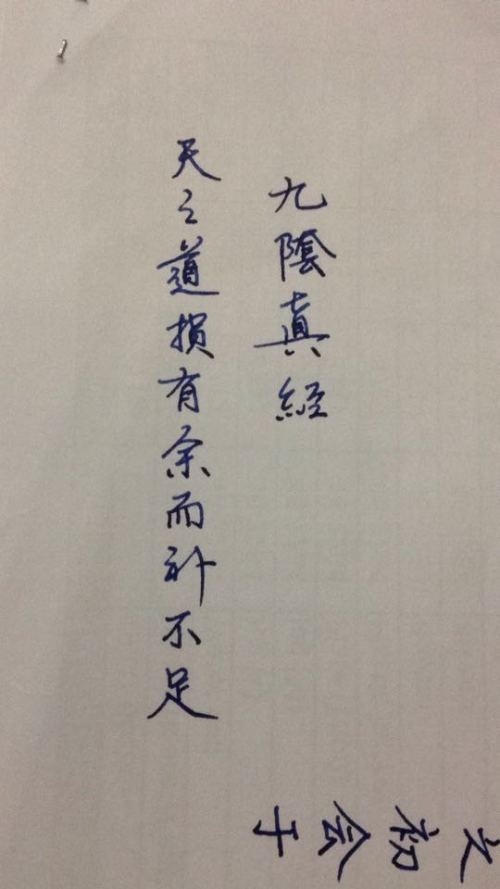 九陰真經
天之道损有余而补不足
初会